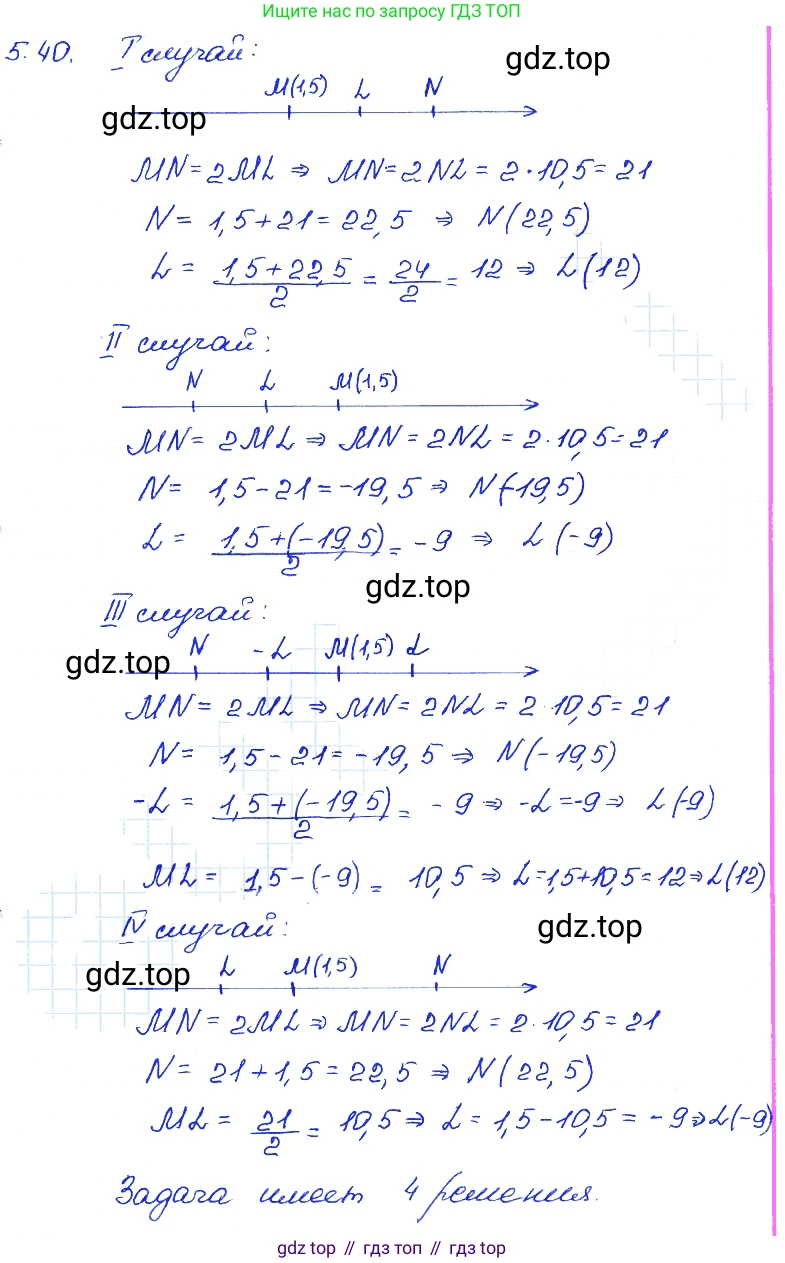 Ищите нас по запросу ГДЗ ТОП
5.40. I случай:
gdz.top
M(1,5) L N
gdz.top
MN = 2ML ⇒ MN = 2NL = 2·10,5 = 21
N = 1,5 + 21 = 22,5 ⇒ N(22,5)
L = (1,5 + 22,5)/2 = 24/2 = 12 ⇒ L(12)
II случай:
N L M(1,5)
MN = 2ML ⇒ MN = 2NL = 2·10,5 = 21
N = 1,5 - 21 = -19,5 ⇒ N(-19,5)
L = (1,5 + (-19,5))/2 = -9 ⇒ L(-9)
gdz.top
III случай:
N -L M(1,5) L
gdz.top
MN = 2ML ⇒ MN = 2NL = 2·10,5 = 21
N = 1,5 - 21 = -19,5 ⇒ N(-19,5)
-L = (1,5 + (-19,5))/2 = -9 ⇒ -L = -9 ⇒ L(-9)
ML = 1,5 - (-9) = 10,5 ⇒ L = 1,5 + 10,5 = 12 ⇒ L(12)
IV случай:
gdz.top
L M(1,5) N
gdz.top
MN = 2ML ⇒ MN = 2NL = 2·10,5 = 21
N = 21 + 1,5 = 22,5 ⇒ N(22,5)
ML = 21/2 = 10,5 ⇒ L = 1,5 - 10,5 = -9 ⇒ L(-9)
Задача имеет 4 решения.
gdz top // гдз топ // gdz top